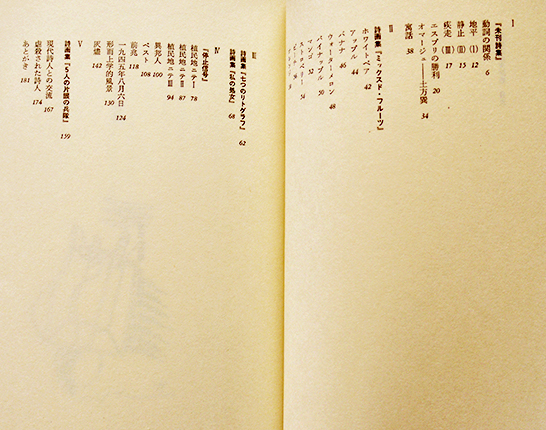 I
『未刊詩集』
動詞の関係 6
地平〔I〕 12
静止〔II〕 15
疾走〔III〕 17
エスプリの勝利 20
オマージュ——土方巽 34
寓話 38
II
詩画集『ミックスド・フルーツ』
ホワイトペア 42
アップル 44
バナナ 46
ウォーターメロン 48
パイナップル 50
マンゴ 52
ストロベリー 54
III
詩画集『七つのリトグラフ』 62
詩画集『私の処女』 68
IV
『停止信号』
植民地ニテI 78
植民地ニテII 87
植民地ニテIII 94
異邦人 100
ペスト 108
前兆 118
一九四五年八月六日 124
形而上学的風景 130
灰燼 142
V
詩画集『5人の片旗の兵隊』 159
現代詩人との交流 167
虐殺された詩人 174
あとがき 181